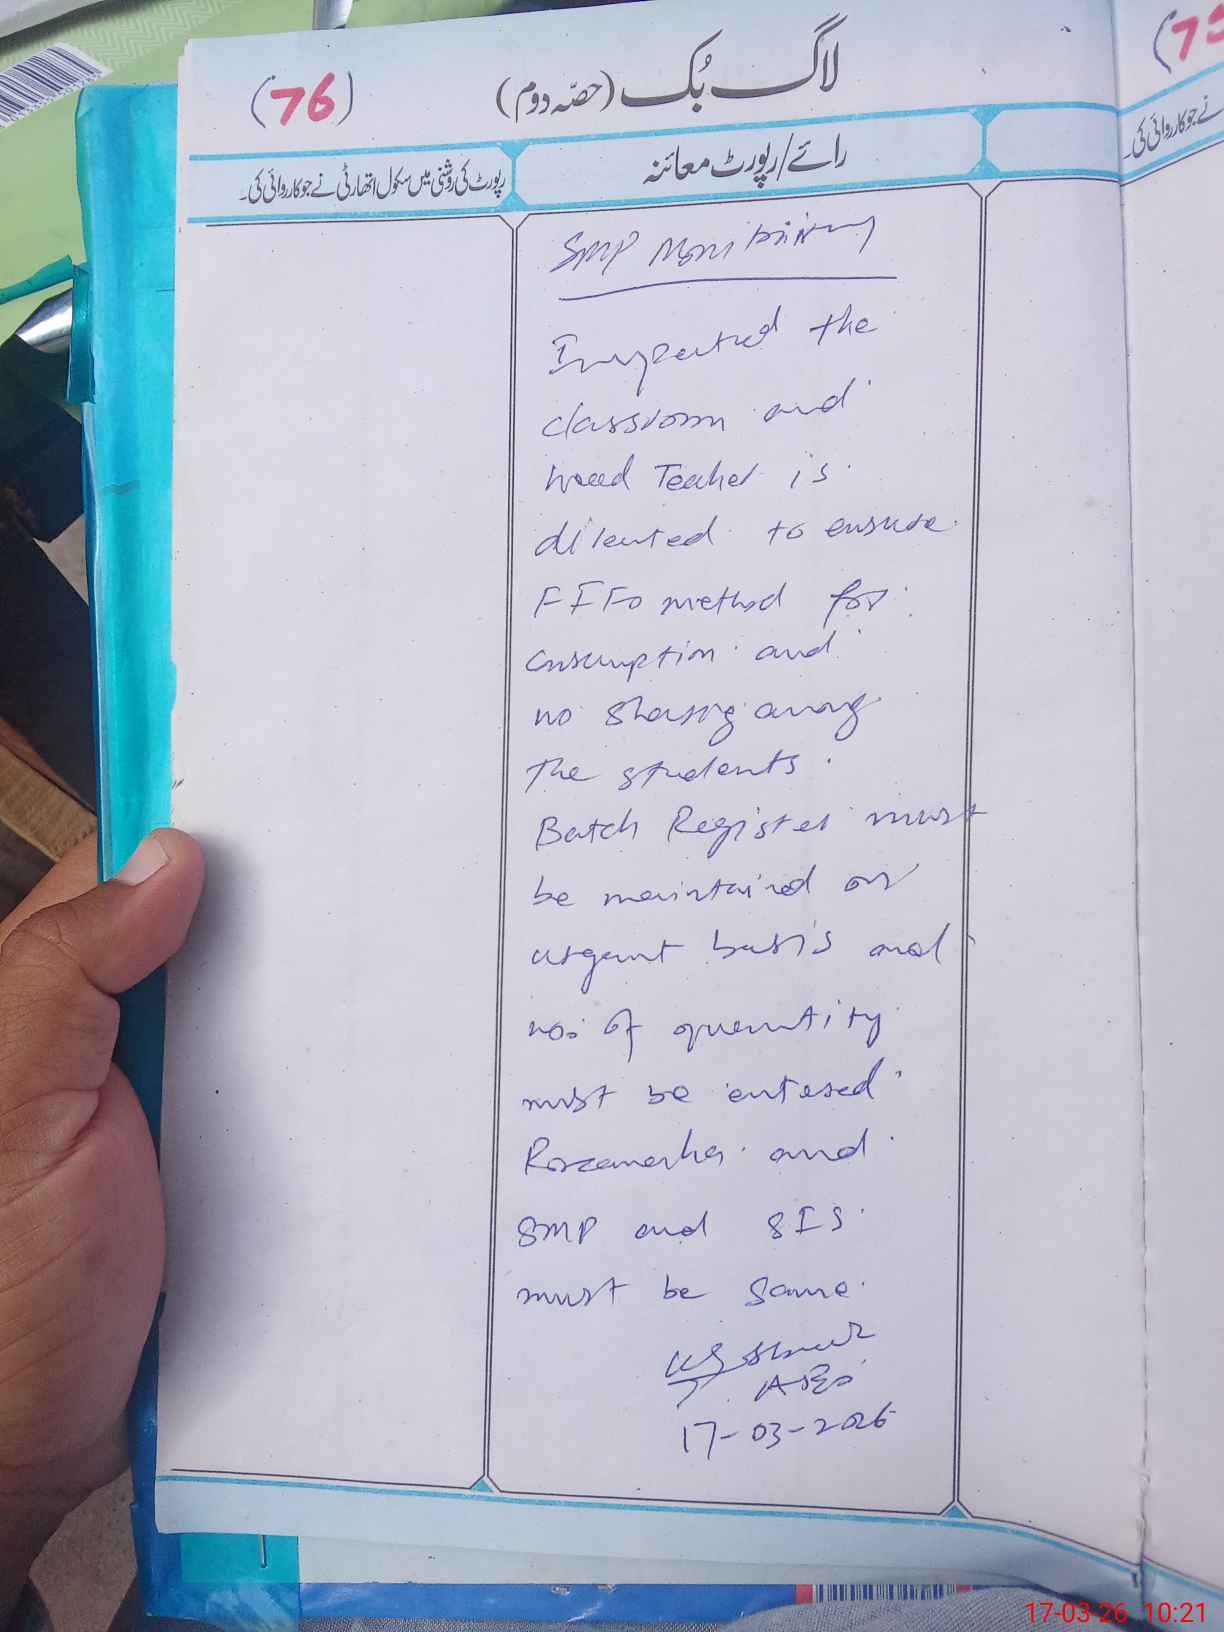 (76)
لاگ بُک (حصّہ دوم)
رائے/رپورٹ معائنہ
رپورٹ کی روشنی میں سکول اتھارٹی نے جو کارروائی کی۔
SMP Monitoring
Inspected the
classroom and
head Teacher is
directed to ensure
FIFO method for
consumption and
no sharing among
the students.
Batch Register must
be maintained on
urgent basis and
no: of quantity
must be entered
Rozanamcha and
SMP and SIS
must be same.
AEO
17-03-2026
نے جو کارروائی کی۔
17-03-26 10:21